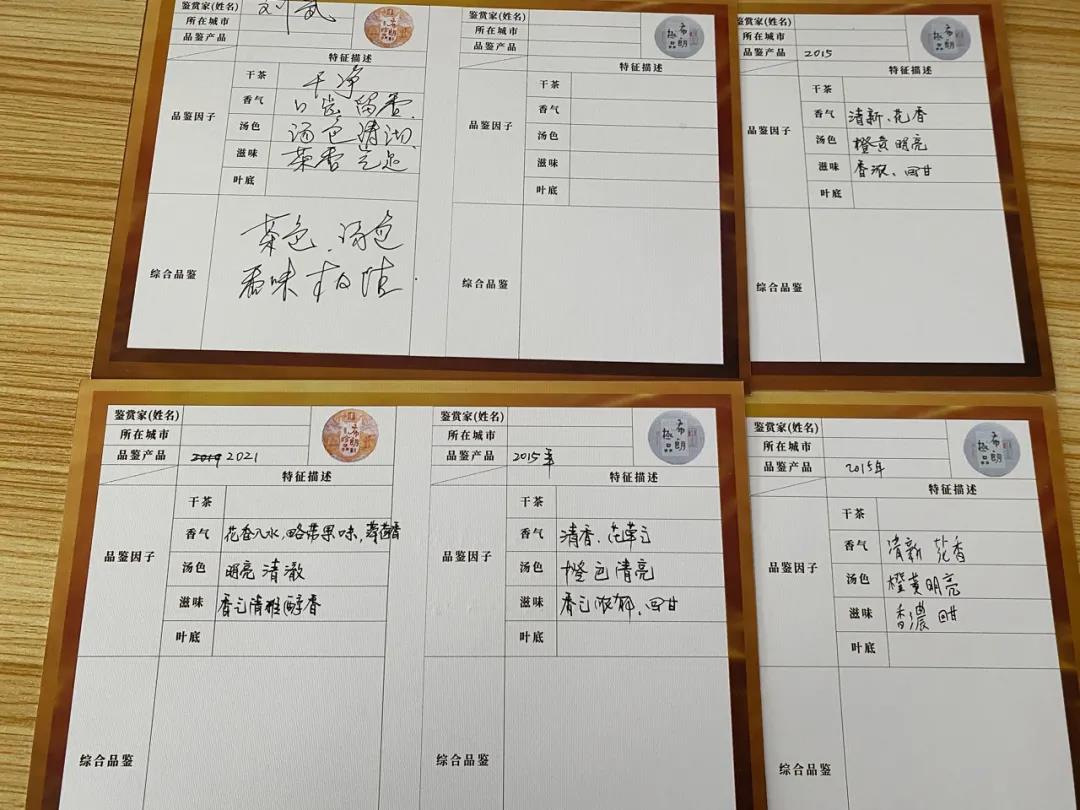 鉴赏家(姓名)
所在城市
品鉴产品
特征描述
品鉴因子
干茶 干净
香气 口齿留香.
汤色 汤色清沏.
滋味 茶香气足
叶底
综合品鉴
茶色.汤色
香味
鉴赏家(姓名)
所在城市
品鉴产品
希朗
极品
特征描述
品鉴因子
干茶
香气
汤色
滋味
叶底
综合品鉴
鉴赏家(姓名)
所在城市
品鉴产品 2015
希朗
极品
特征描述
品鉴因子
干茶
香气 清新、花香
汤色 橙黄明亮
滋味 香浓、回甘
叶底
综合品鉴
鉴赏家(姓名)
所在城市
品鉴产品 2019 2021
希朗
珍品
特征描述
品鉴因子
干茶
香气 花香入水,略带果味,
汤色 明亮清澈
滋味 香气清雅醇香
叶底
综合品鉴
鉴赏家(姓名)
所在城市
品鉴产品 2015年
希朗
极品
特征描述
品鉴因子
干茶
香气 清香、
汤色 橙色清亮
滋味 香气浓郁、回甘
叶底
综合品鉴
鉴赏家(姓名)
所在城市
品鉴产品 2015年
希朗
极品
特征描述
品鉴因子
干茶
香气 清新 花香
汤色 橙黄明亮
滋味 香濃 回甘
叶底
综合品鉴